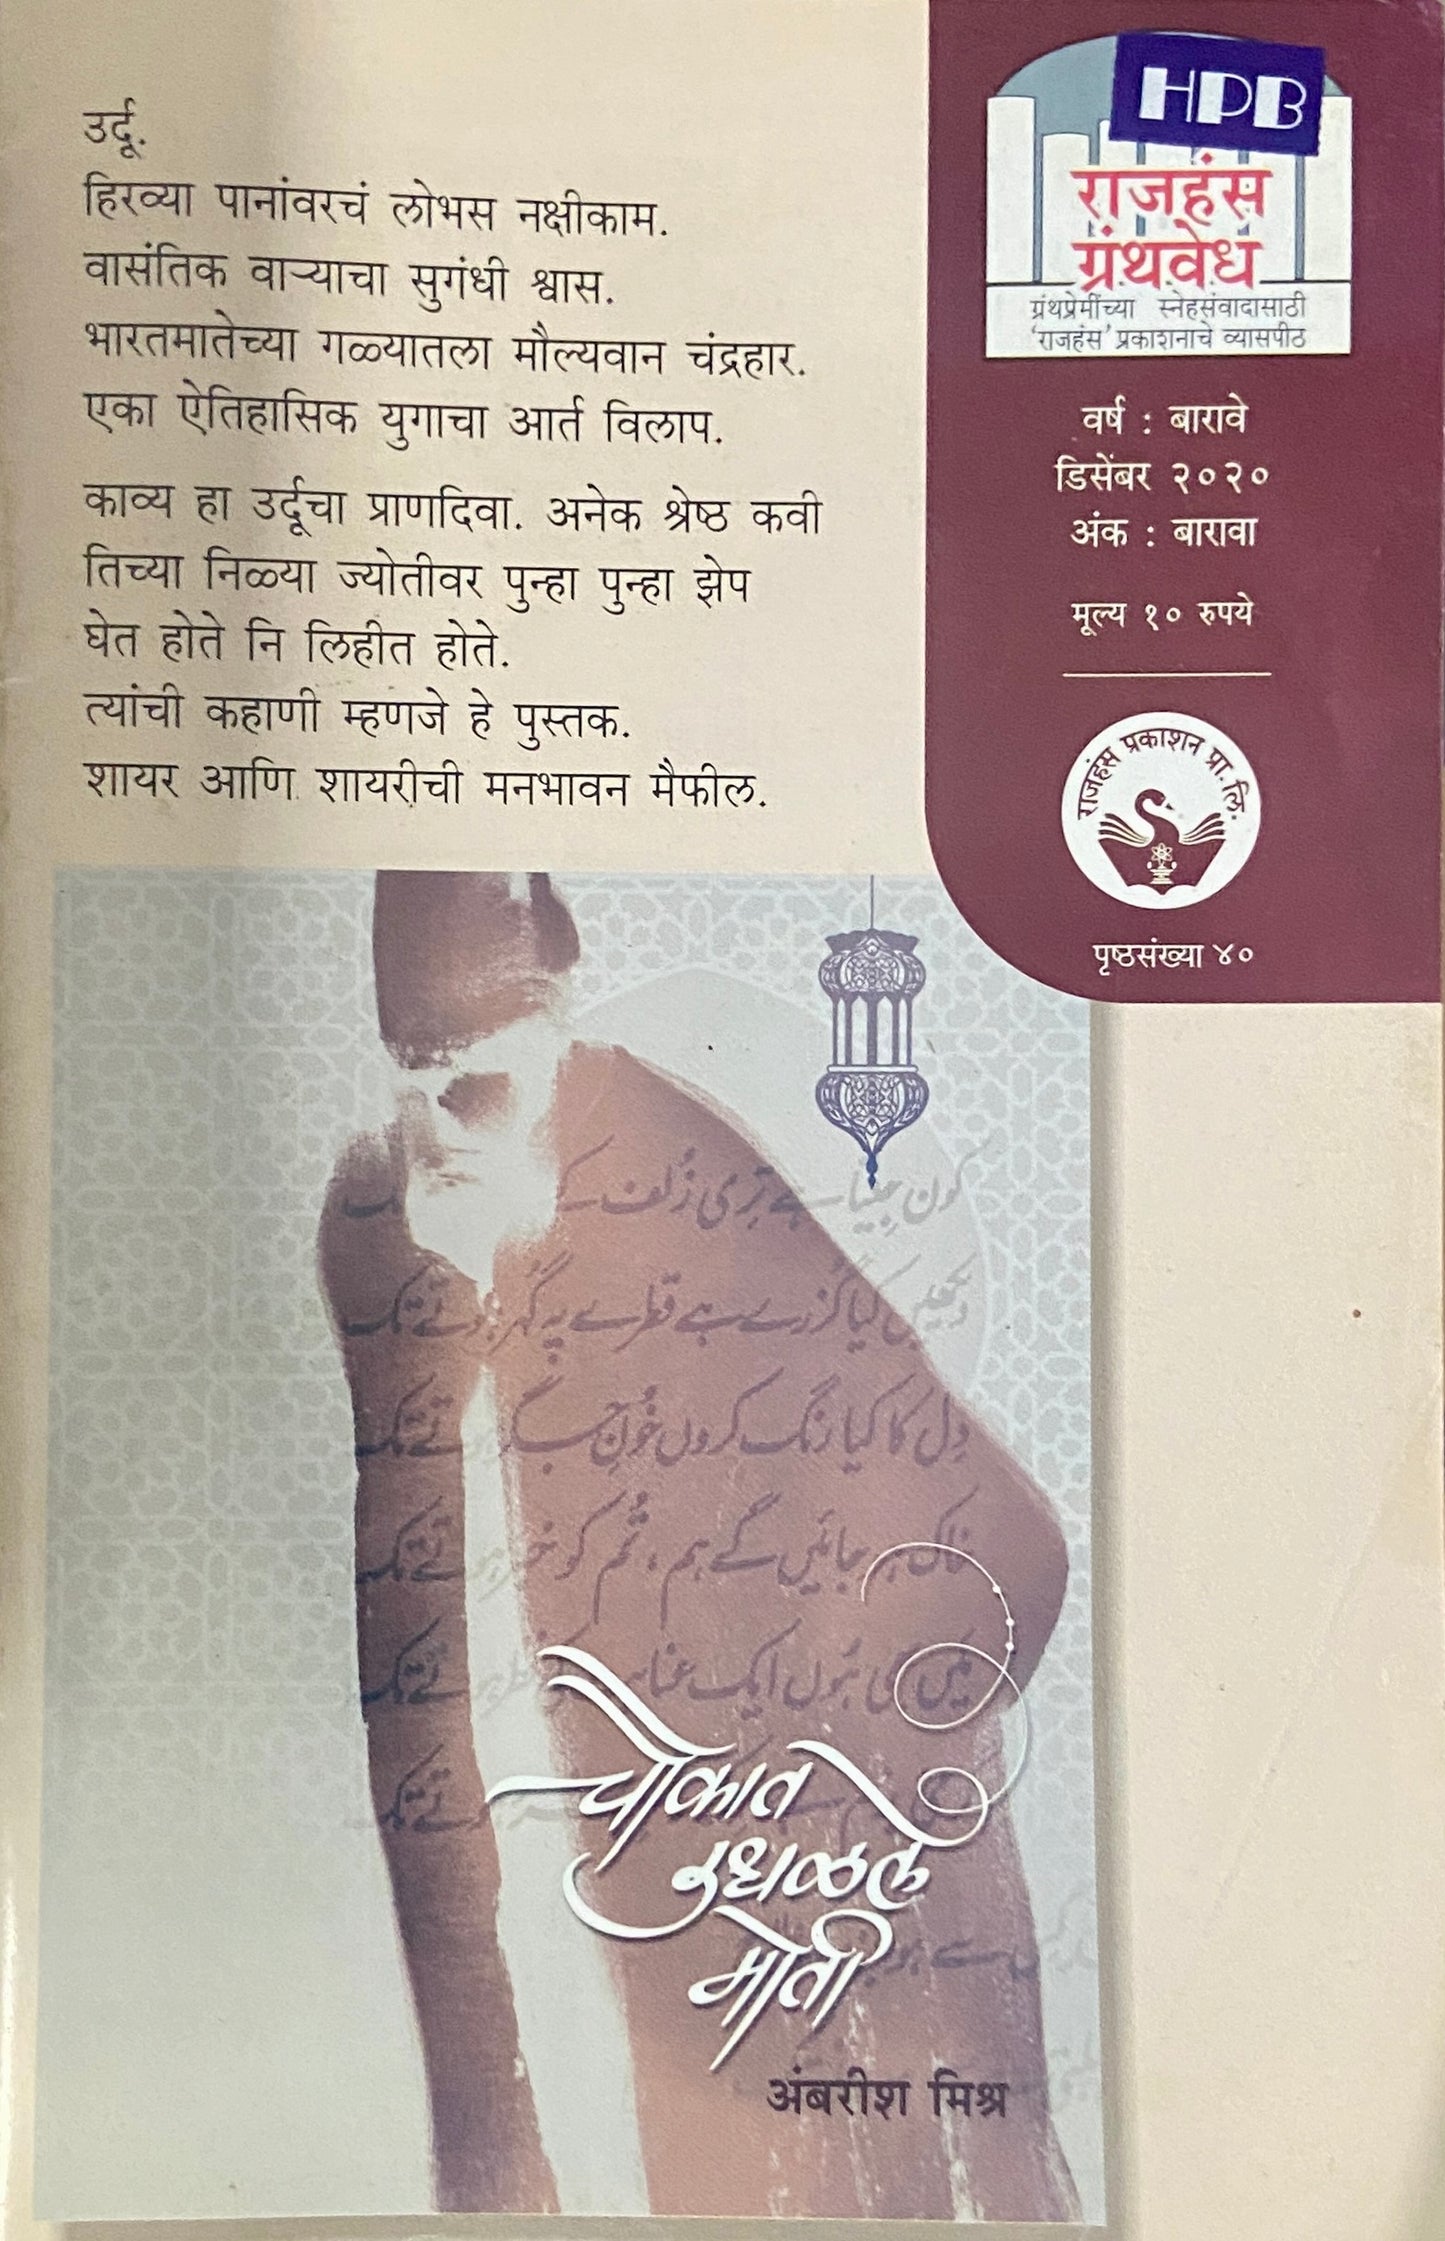 उर्दू.
हिरव्या पानांवरचं लोभस नक्षीकाम.
वासंतिक वाऱ्याचा सुगंधी श्वास.
भारतमातेच्या गळ्यातला मौल्यवान चंद्रहार.
एका ऐतिहासिक युगाचा आर्त विलाप.
काव्य हा उर्दूचा प्राणदिवा. अनेक श्रेष्ठ कवी
तिच्या निळ्या ज्योतीवर पुन्हा पुन्हा झेप
घेत होते नि लिहीत होते.
त्यांची कहाणी म्हणजे हे पुस्तक.
शायर आणि शायरीची मनभावन मैफील.
HPB
राजहंस
ग्रंथवेध
ग्रंथप्रेमींच्या स्नेहसंवादासाठी
'राजहंस' प्रकाशनाचे व्यासपीठ
वर्ष : बारावे
डिसेंबर २०२०
अंक : बारावा
मूल्य १० रुपये
राजहंस प्रकाशन प्रा. लि.
पृष्ठसंख्या ४०
کون جیتا ہے تری زلف کے
دیکھیں کیا گزرے ہے قطرے پہ گہر ہوتے تک
دل کا کیا رنگ کروں خون جگر ہوتے تک
خاک ہو جائیں گے ہم، تم کو خبر ہوتے تک
میں بھی ہوں ایک تک
चौकात
उधळले
मोती
अंबरीश मिश्र